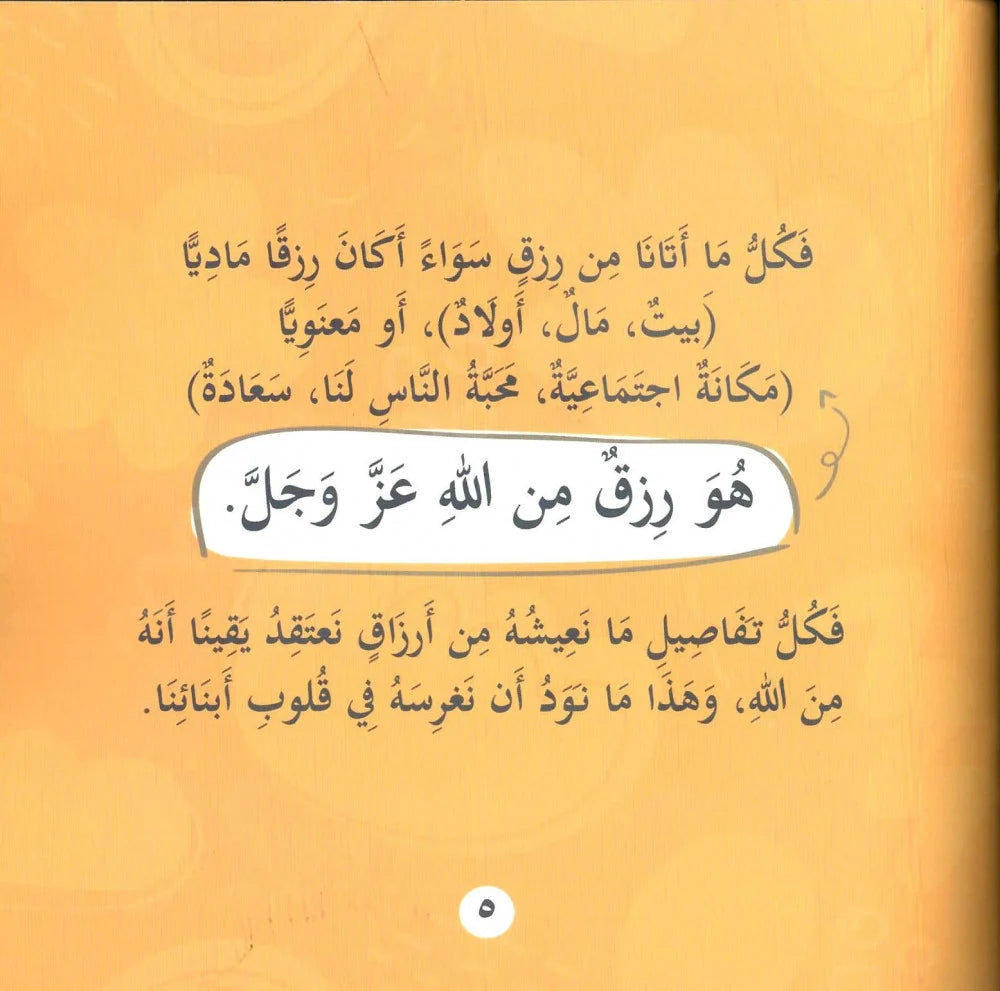 فَكُلُّ مَا أَتَانَا مِن رِزقٍ سَوَاءً أَكَانَ رِزقًا مَادِيًّا
(بَيتٌ، مَالٌ، أَولَادٌ)، أَو مَعنَوِيًّا
(مَكَانَةٌ اجتَمَاعِيَّةٌ، مَحَبَّةُ النَّاسِ لَنَا، سَعَادَةٌ)
هُوَ رِزقٌ مِن اللهِ عَزَّ وَجَلَّ.
فَكُلُّ تَفَاصِيلِ مَا نَعِيشُهُ مِن أَرزَاقٍ نَعتَقِدُ يَقِينًا أَنَهُ
مِنَ اللهِ، وَهَذَا مَا نَوَدُ أَن نَغرِسَهُ فِي قُلوبِ أَبنَائِنَا.
٥